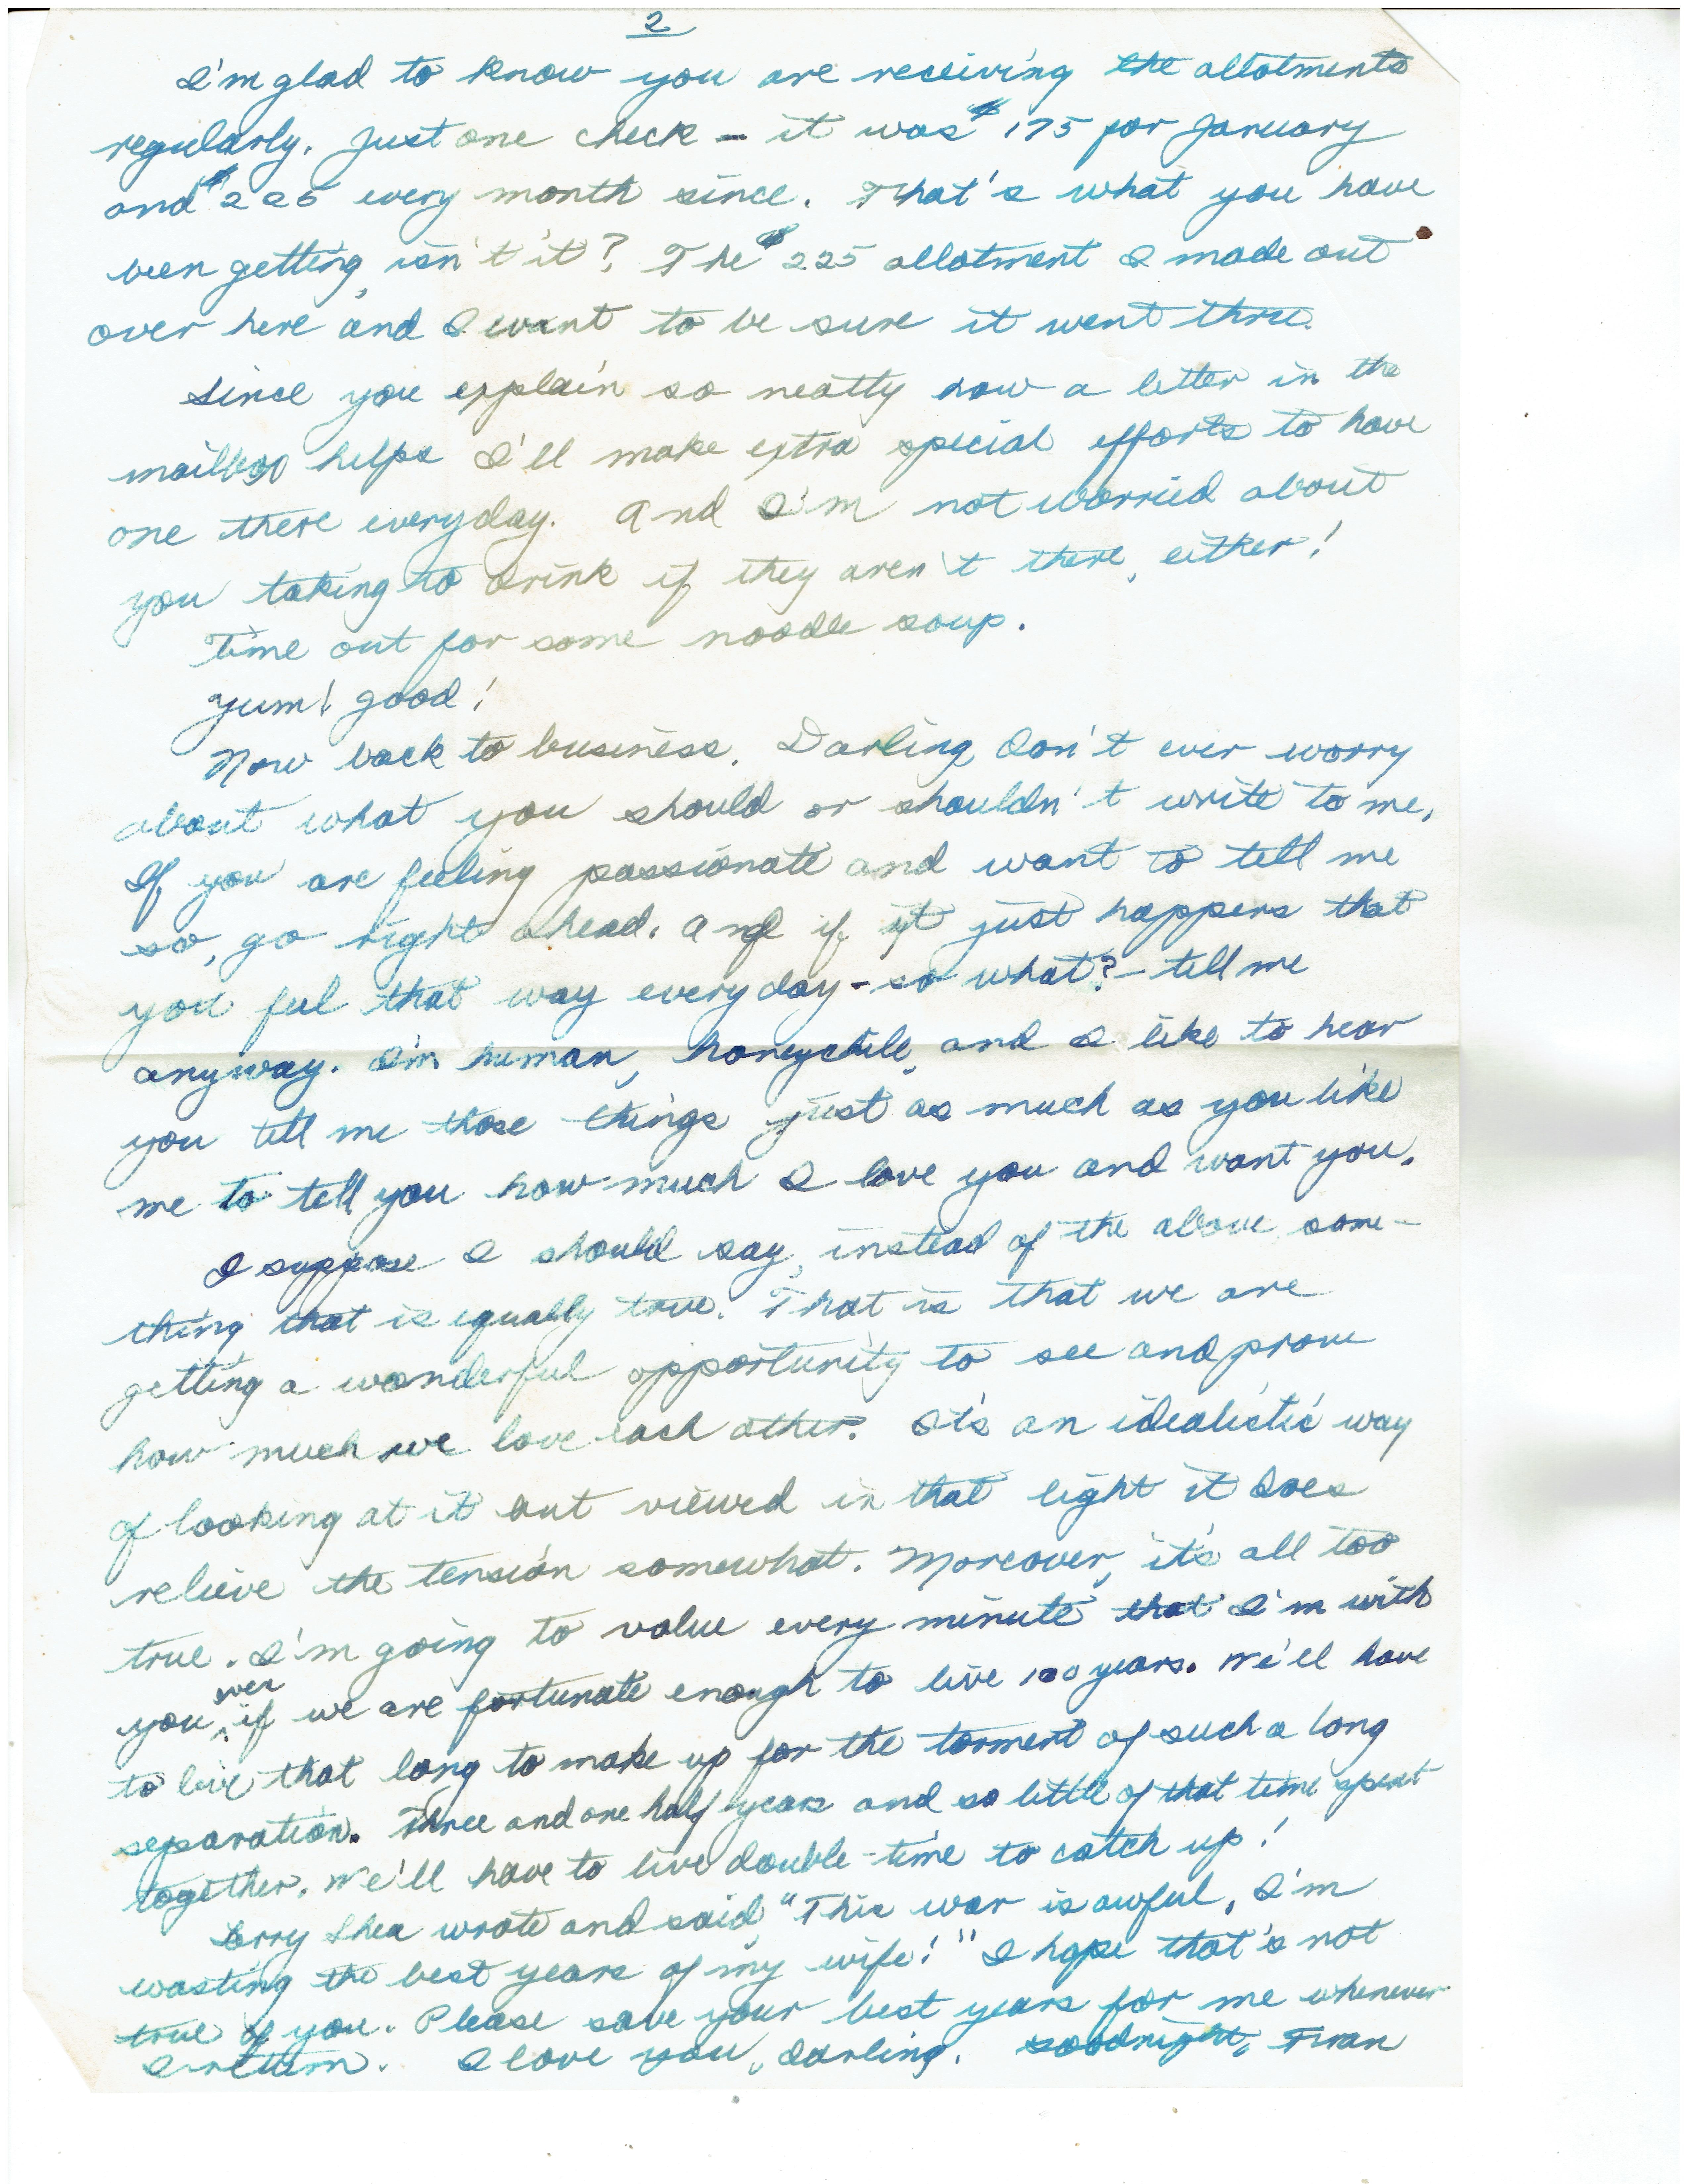 2
I'm glad to know you are receiving the allotments
regularly. Just one check – it was $175 for January
and $225 every month since. That's what you have
been getting, isn't it? The $225 allotment I made out
over here and I want to be sure it went thru.
Since you explain so neatly how a letter in the
mailbox helps I'll make extra special efforts to have
one there everyday. And I'm not worried about
you taking to drink if they aren't there, either!
Time out for some noodle soup.
Yum! good!
Now back to business. Darling don't ever worry
about what you should or shouldn't write to me.
If you are feeling passionate and want to tell me
so, go right ahead. And if it just happens that
you feel that way everyday – so what? – tell me
anyway. I'm human, honeychile, and I like to hear
you tell me those things just as much as you like
me to tell you how much I love you and want you.
I suppose I should say, instead of the above some-
thing that is equally true. That is that we are
getting a wonderful opportunity to see and prove
how much we love each other. It's an idealistic way
of looking at it but viewed in that light it does
relieve the tension somewhat. Moreover, it's all too
true. I'm going to value every minute that I'm with
you, if we are fortunate enough to live 100 years. We'll have
to live that long to make up for the torment of such a long
separation. Three and one half years and so little of that time spent
together. We'll have to live double-time to catch up!
Shea wrote and said, "This war is awful, I'm
wasting the best years of my wife!" I hope that's not
true of you. Please save your best years for me whenever
I return. I love you, darling. Goodnight,